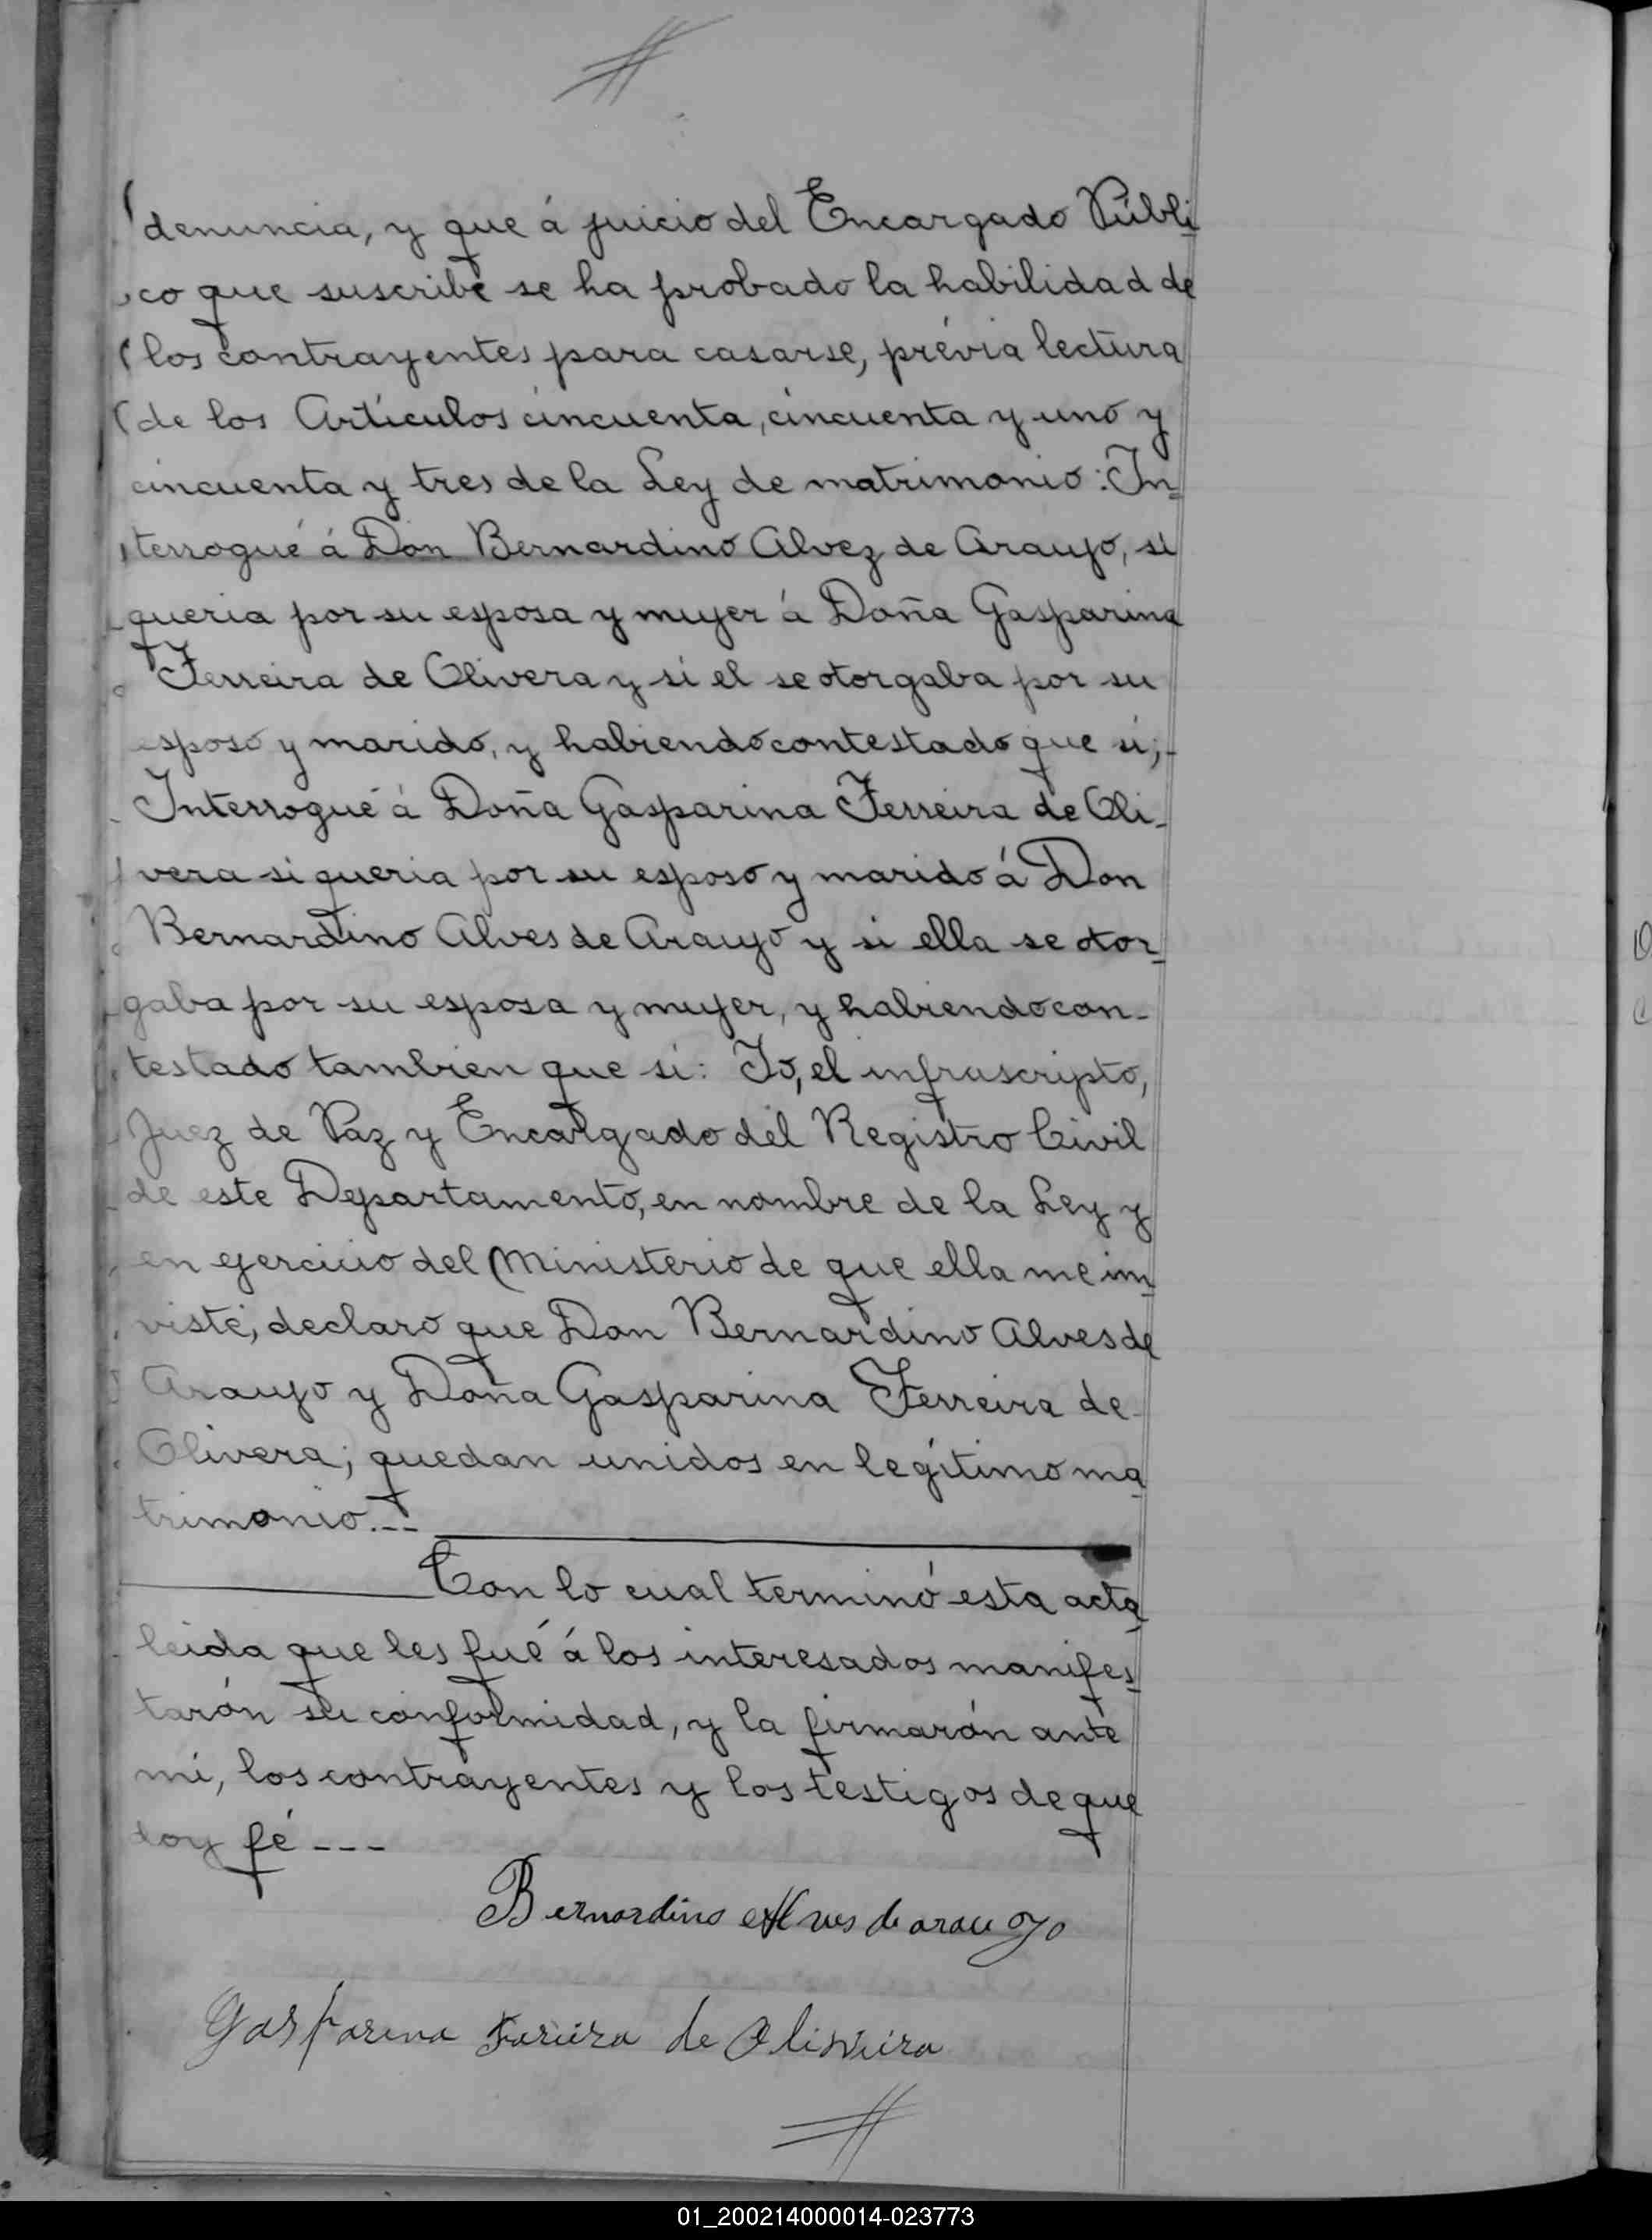 denuncia, y que á juicio del Encargado Públi
co que suscribe se ha probado la habilidad de
los contrayentes para casarse, prévia lectura
de los Artículos cincuenta, cincuenta y uno y
cincuenta y tres de la Ley de matrimonio: In=
terrogué á Don Bernardino Alvez de Araujo, si
queria por su esposa y mujer á Doña Gasparina
Ferreira de Olivera y si el se otorgaba por su
esposo y marido, y habiendo contestado que si;-
Interrogué á Doña Gasparina Ferreira de Oli-
vera si queria por su esposo y marido á Don
Bernardino Alves de Araujo y si ella se otor-
gaba por su esposa y mujer, y habiendo con-
testado tambien que si: Yo, el infrascripto,
Juez de Paz y Encargado del Registro Civil
de este Departamento, en nombre de la Ley y
en ejercicio del Ministerio de que ella me im
viste, declaro que Don Bernardino Alves de
Araujo y Doña Gasparina Ferreira de-
Olivera; quedan unidos en legítimo ma
trimonio.--
Con lo cual terminó esta acta
leida que les fué á los interesados manifes
tarón su conformidad, y la firmarón ante
mi, los contrayentes y los testigos de que
doy fé ---
Bernardino Alves de araujo
Gasparina Fareira de Oliveira
01_200214000014-023773